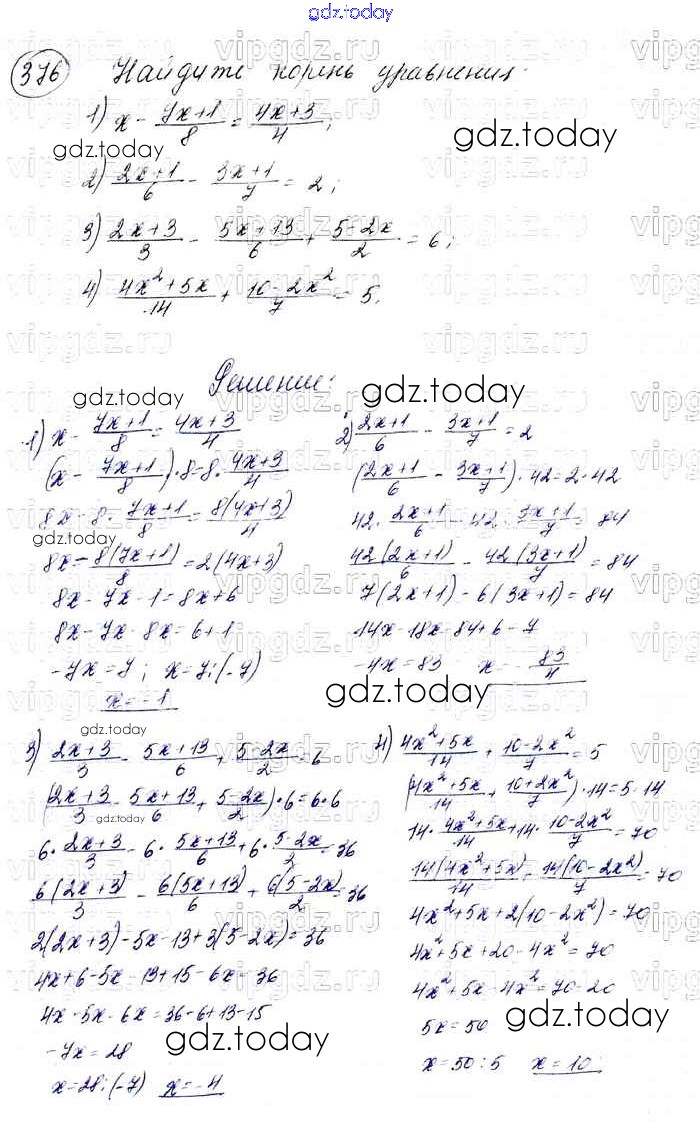 gdz.today
376 Найдите корень уравнения:
1) x - (7x+1)/8 = (4x+3)/4;
2) (2x+1)/6 - (3x+1)/7 = 2;
3) (2x+3)/3 - (5x+13)/6 + (5-2x)/2 = 6;
4) (4x²+5x)/14 + (10-2x²)/7 = 5.
Решение:
1) x - (7x+1)/8 = (4x+3)/4
(x - (7x+1)/8)·8=8·(4x+3)/4
8x - 8·(7x+1)/8 = 8(4x+3)/4
8x - 8(7x+1)/8 = 2(4x+3)
8x - 7x - 1 = 8x+6
8x - 7x - 8x = 6+1
-7x = 7; x = 7:(-7)
x = -1
2) (2x+1)/6 - (3x+1)/7 = 2
((2x+1)/6 - (3x+1)/7)·42=2·42
42·(2x+1)/6 - 42·(3x+1)/7 = 84
42(2x+1)/6 - 42(3x+1)/7 = 84
7(2x+1) - 6(3x+1) = 84
14x - 18x = 84+6-7
-4x = 83 x = -83/4
3) (2x+3)/3 - (5x+13)/6 + (5-2x)/2 = 6
((2x+3)/3 - (5x+13)/6 + (5-2x)/2)·6=6·6
6·(2x+3)/3 - 6·(5x+13)/6 + 6·(5-2x)/2 = 36
6(2x+3)/3 - 6(5x+13)/6 + 6(5-2x)/2 = 36
2(2x+3) - 5x - 13 + 3(5-2x) = 36
4x+6-5x-13+15-6x = 36
4x-5x-6x = 36-6+13-15
-7x = 28
x = 28:(-7) x = -4
4) (4x²+5x)/14 + (10-2x²)/7 = 5
((4x²+5x)/14 + (10+2x²)/7)·14=5·14
14·(4x²+5x)/14 + 14·(10-2x²)/7 = 70
14(4x²+5x)/14 + 14(10-2x²)/7 = 70
4x²+5x+2(10-2x²) = 70
4x²+5x+20-4x² = 70
4x²+5x-4x² = 70-20
5x = 50
x = 50:5 x = 10